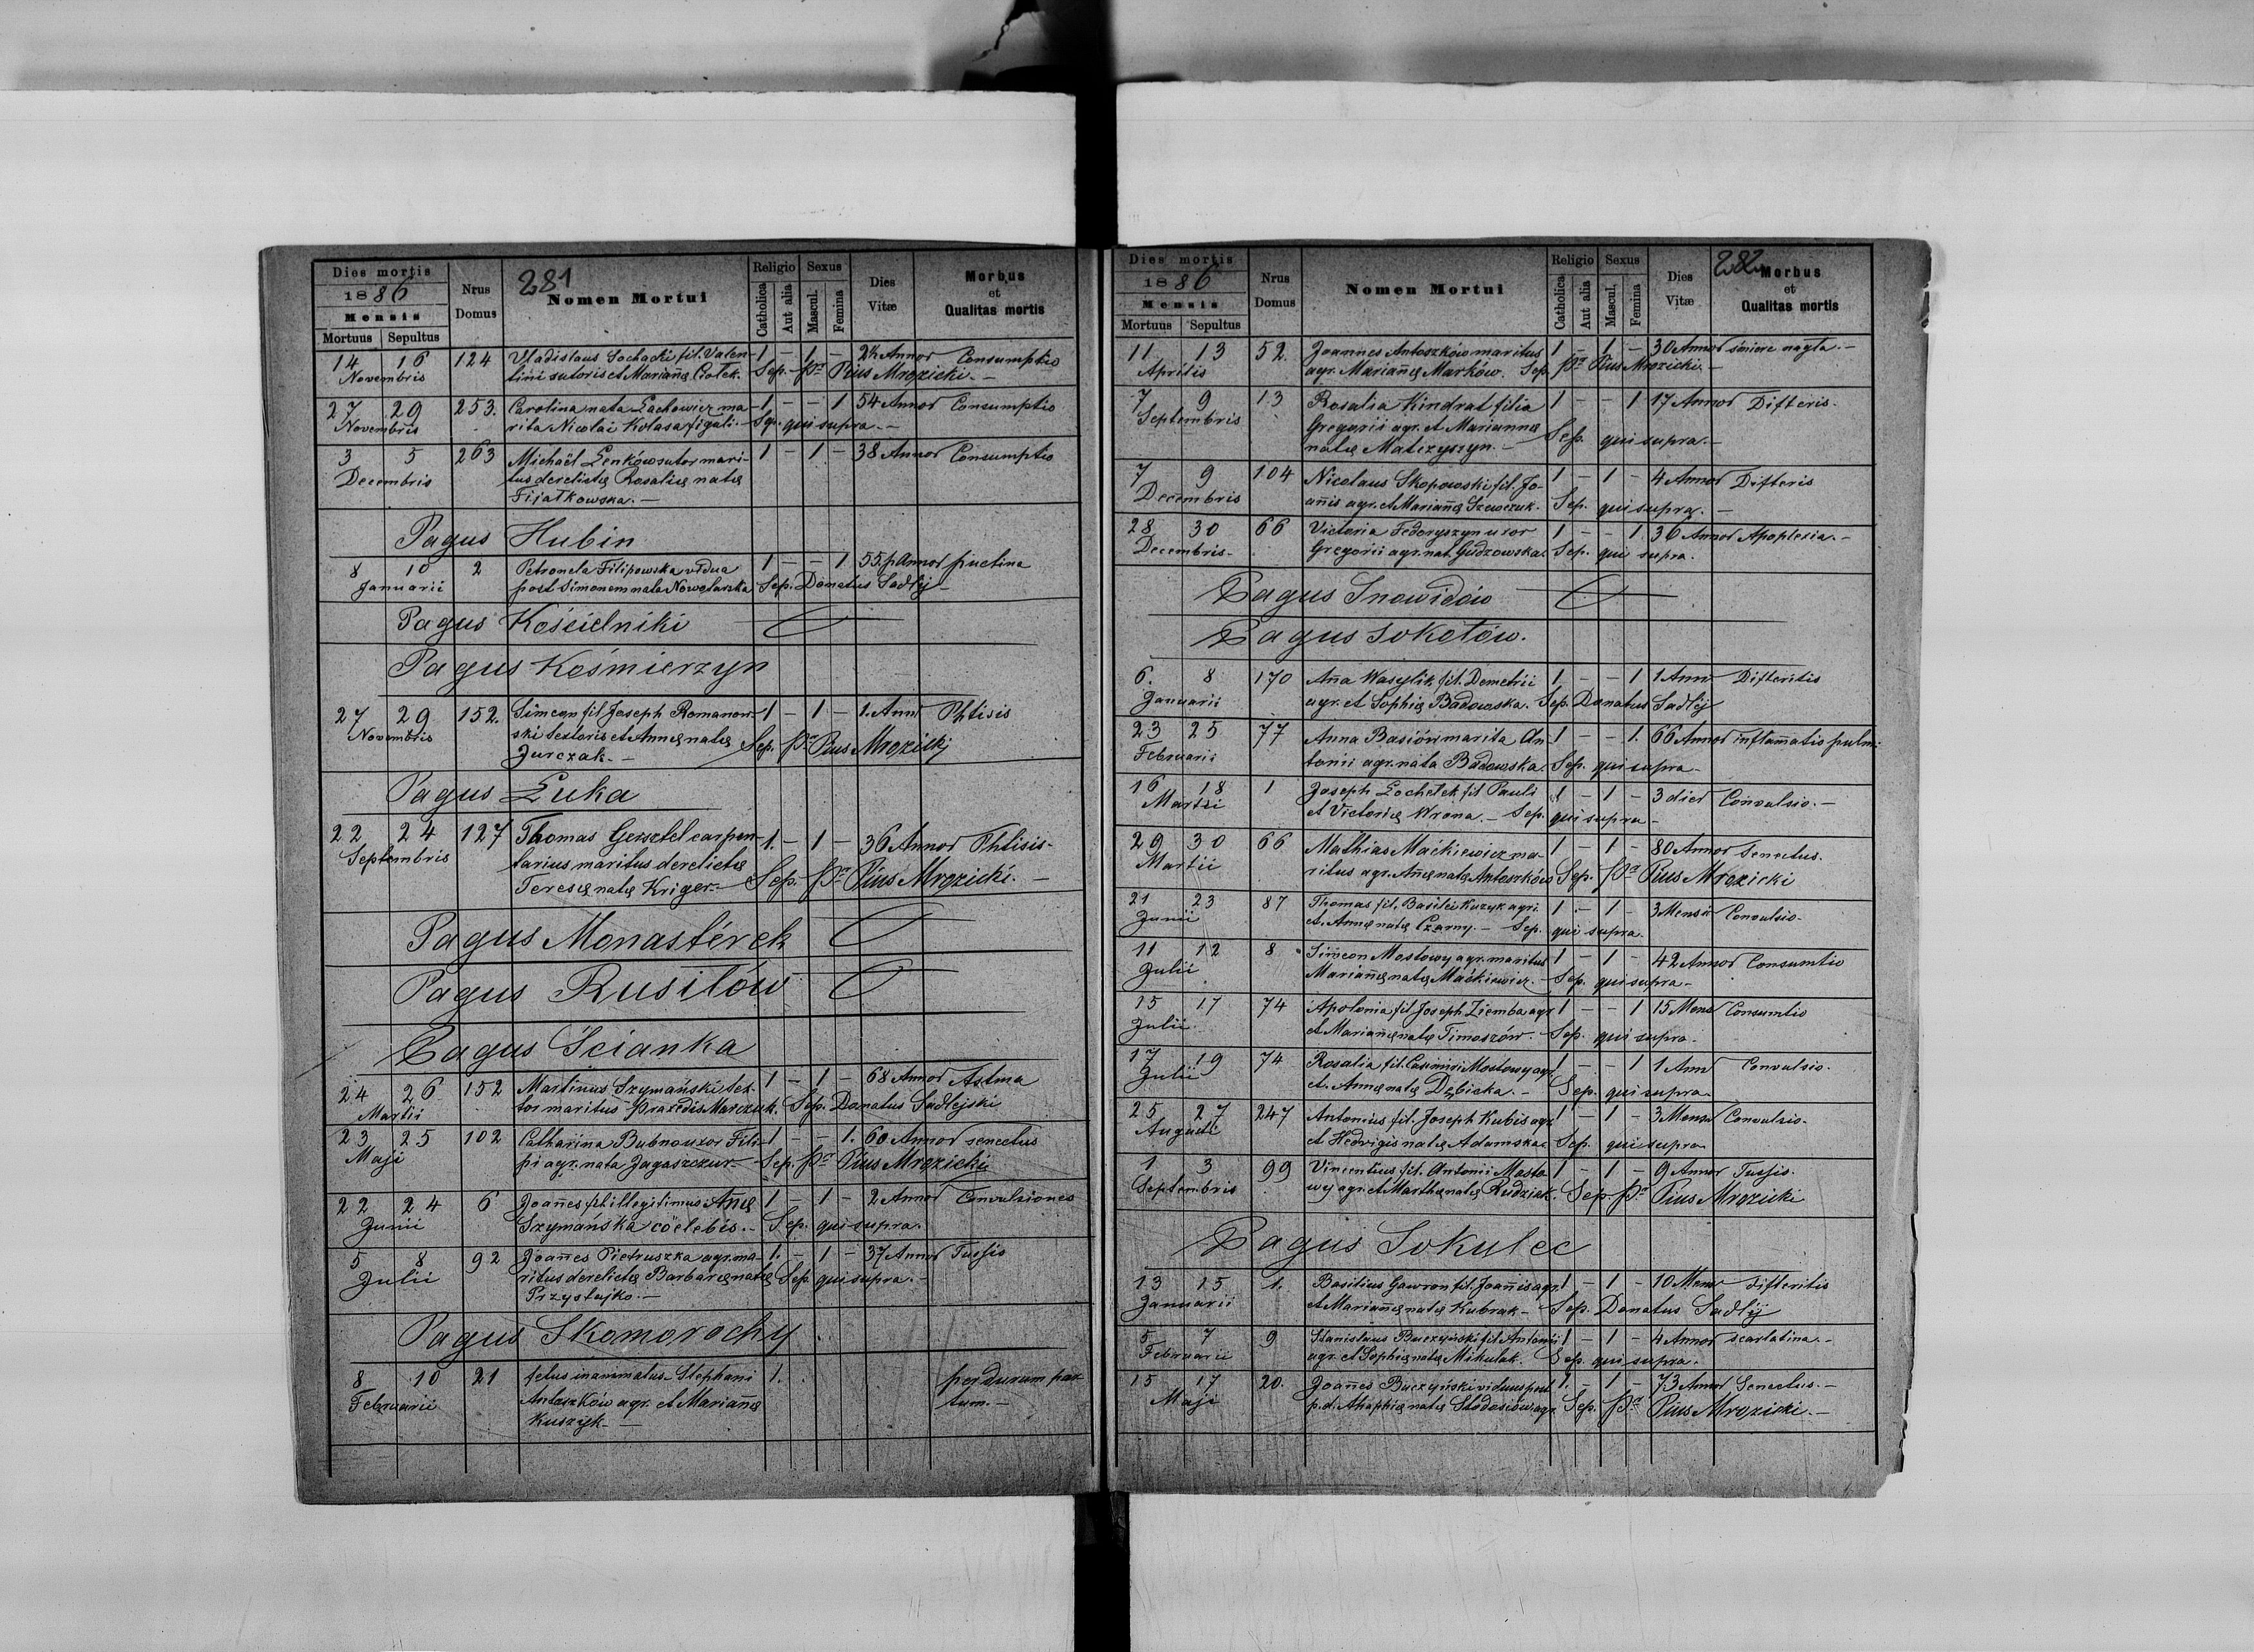 Dies mortis
1886
Mensis
Mortuus Sepultus
Nrus Domus
281
Nomen Mortui
Religio
Catholica
Aut alia
Sexus
Mascul.
Femina
Dies Vitæ
Morbus et Qualitas mortis
14 16 124 Vladislaus Sochacki fil. Valen- 1 - 1 - 24 Annor Consumptio
Novembris tini sutoris et Mariannę Ciołek. Sep. Pr Pius Mrozicki. -
27 29 253. Carolina nata Lachowicz ma- 1 - - 1 54 Annor Consumptio
Novembris rita Nicolai Kolasa figuli. - Sep. qui supra. -
3 5 263 Michaël Lenków sutor mari- 1 - 1 - 38 Annor Consumptio
Decembris tus derelictę Rosalię natę
Fijałkowska. -
Pagus Hubin
8 10 2 Petronela Filipowska vidua 1 - - 1 55. p Annor
Januarii post Simonem nata Nowętarska Sep. Donatus Sadłij -
Pagus Kościelniki
Pagus Kośmierzyn
27 29 152. Simeon fil Joseph Romanow- 1 - 1 - 1. Ann Phtisis
Novembris ski textoris et Annę natę Sep. Pr Pius Mrozickj
Jurczak. -
Pagus Łuka
22 24 127 Thomas Gersztel carpen- 1. - 1 - 36 Annor Phtisis -
Septembris tarius maritus derelictę
Teresę natę Kriger. - Sep. Pr Pius Mrozicki. -
Pagus Monasterek
Pagus Rusiłów
Pagus Ścianka
24 26 152 Martinus Szymański tex- 1 - 1 - 68 Annor Astma
Martii tor maritus Praxedis Marczuk. Sep. Donatus Sadłejski
23 25 102 Catharina Bubno uxor Fili- 1 - - 1. 60 Annor senectus
Maji pi agr. nata Jagaszczur - Sep. Pr Pius Mrozicki
22 24 6 Joañes fil illegitimus Añę 1 - 1 - 2 Annor Convulsiones
Junii Szymańska cöelebis. - Sep. qui supra.
5 8 92 Joañes Pietruszka agr. ma- 1. - 1 - 37 Annor Tussis
Julii ritus derelictę Barbarę natę Sep. qui supra. -
Przystajko. -
Pagus Skomorochy
8 10 21 fetus inanimatus Stephani 1. per durum par
Februarii Antoszków agr. et Mariañę tum. -
Kuszyk -
Dies mortis
1886
Mensis
Mortuus Sepultus
Nrus Domus
Nomen Mortui
Religio
Catholica
Aut alia
Sexus
Mascul.
Femina
Dies Vitæ
282
Morbus et Qualitas mortis
11 13 52. Joannes Antoszków maritus 1 - 1 - 30 Annor nagła. -
Aprilis agr. Mariañę Marków. Sep. Pr Pius Mrozicki. -
7 9 13 Rosalia Kindrat filia 1 - - 1 17 Annor Difteris.
Septembris Gregorii agr. et Mariannę
natę Matczyszyn. - Sep. qui supra. -
7 9 104 Nicolaus Skopowski fil. Jo- 1 - 1 - 4 Annor Difteris
Decembris añis agr. et Mariañę Szewczuk. Sep. qui supra. -
28 30 66 Victoria Fedoryszyn uxor 1 - - 1. 36 Annor Apoplexia. -
Decembris - Gregorii agr. nat. Gudzowska. Sep. qui supra.
Pagus Snowidów
Pagus Sokołów.
6. 8 170 Aña Wasylik fil. Demetrii 1 - - 1 1 Ann Difteritis
Januarii agr. et Sophię Badowska. Sep. Donatus Sadłej
23 25 77 Anna Basiów marita An- 1 - - 1. 66 Annor inflamatio pulm.
Februarii tonii agr. nata Badowska. Sep. qui supra -
16 18 1 Joseph Lochetek fil Pauli 1 - 1 - 3 dier Convulsio. -
Martii et Victorię Wrona. - Sep. qui supra -
29 30 66 Mathias Maćkiewicz ma- 1 - 1 - 80 Annor Senectus.
Martii ritus agr. Añę natę Antoszków Sep. Pr Pius Mrozicki
21 23 87 Thomas fil. Basilei Kuzyk agri. 1 - 1 - 3 Mensi Convulsio -
Junii et. Annę natę Czarny. - Sep. qui supra.
11 12 8 Simeon Mostowy agr. maritus 1 - 1 - 42 Annor Consumtio
Julii Mariañę natę Maćkiewicz. - Sep. qui supra -
15 17 74 Apolonia fil Joseph Ziemba agr 1 - - 1 15 Mens Consumtio
Julii. et Mariañę natę Timoszów. Sep. qui supra.
17 19 74 Rosalia fil. Casimiri Mostowy agr. 1 - - 1 1 Ann Convulsio.
Julii et. Annę natę Dębicka. - Sep. qui supra
25 27 247 Antonius fil. Joseph Kubis agr. 1 - 1 - 3 Mens Convulsio.
Augusti et Hedvigis natę Adamska Sep. qui supra
1 3 99 Vincentius fil. Antonii Mosto 1 - 1 - 9 Annor Tussis.
Septembris wy agr. et Marthę natę Rudziak. Sep Pr Pius Mrozicki
Pagus Sokulec
13 15 1. Basilius Gawron fil. Joañis agr. 1 - 1 - 10 Mens Difteritis
Januarii et Mariañę natę Kubrak - Sep. Donatus Sadłij
5 7 9 Stanislaus Buczyński fil Antonii 1 - 1 - 4 Annor scarlatina. -
Februarii agr. et Sophię natę Mikulak. Sep. qui supra.
15 17 20. Joañes Buczyński viduus post 1. - 1 - 73 Annor Senectus. -
Maji p. d. natę agr. Sep. Pr Pius Mrozicki. -